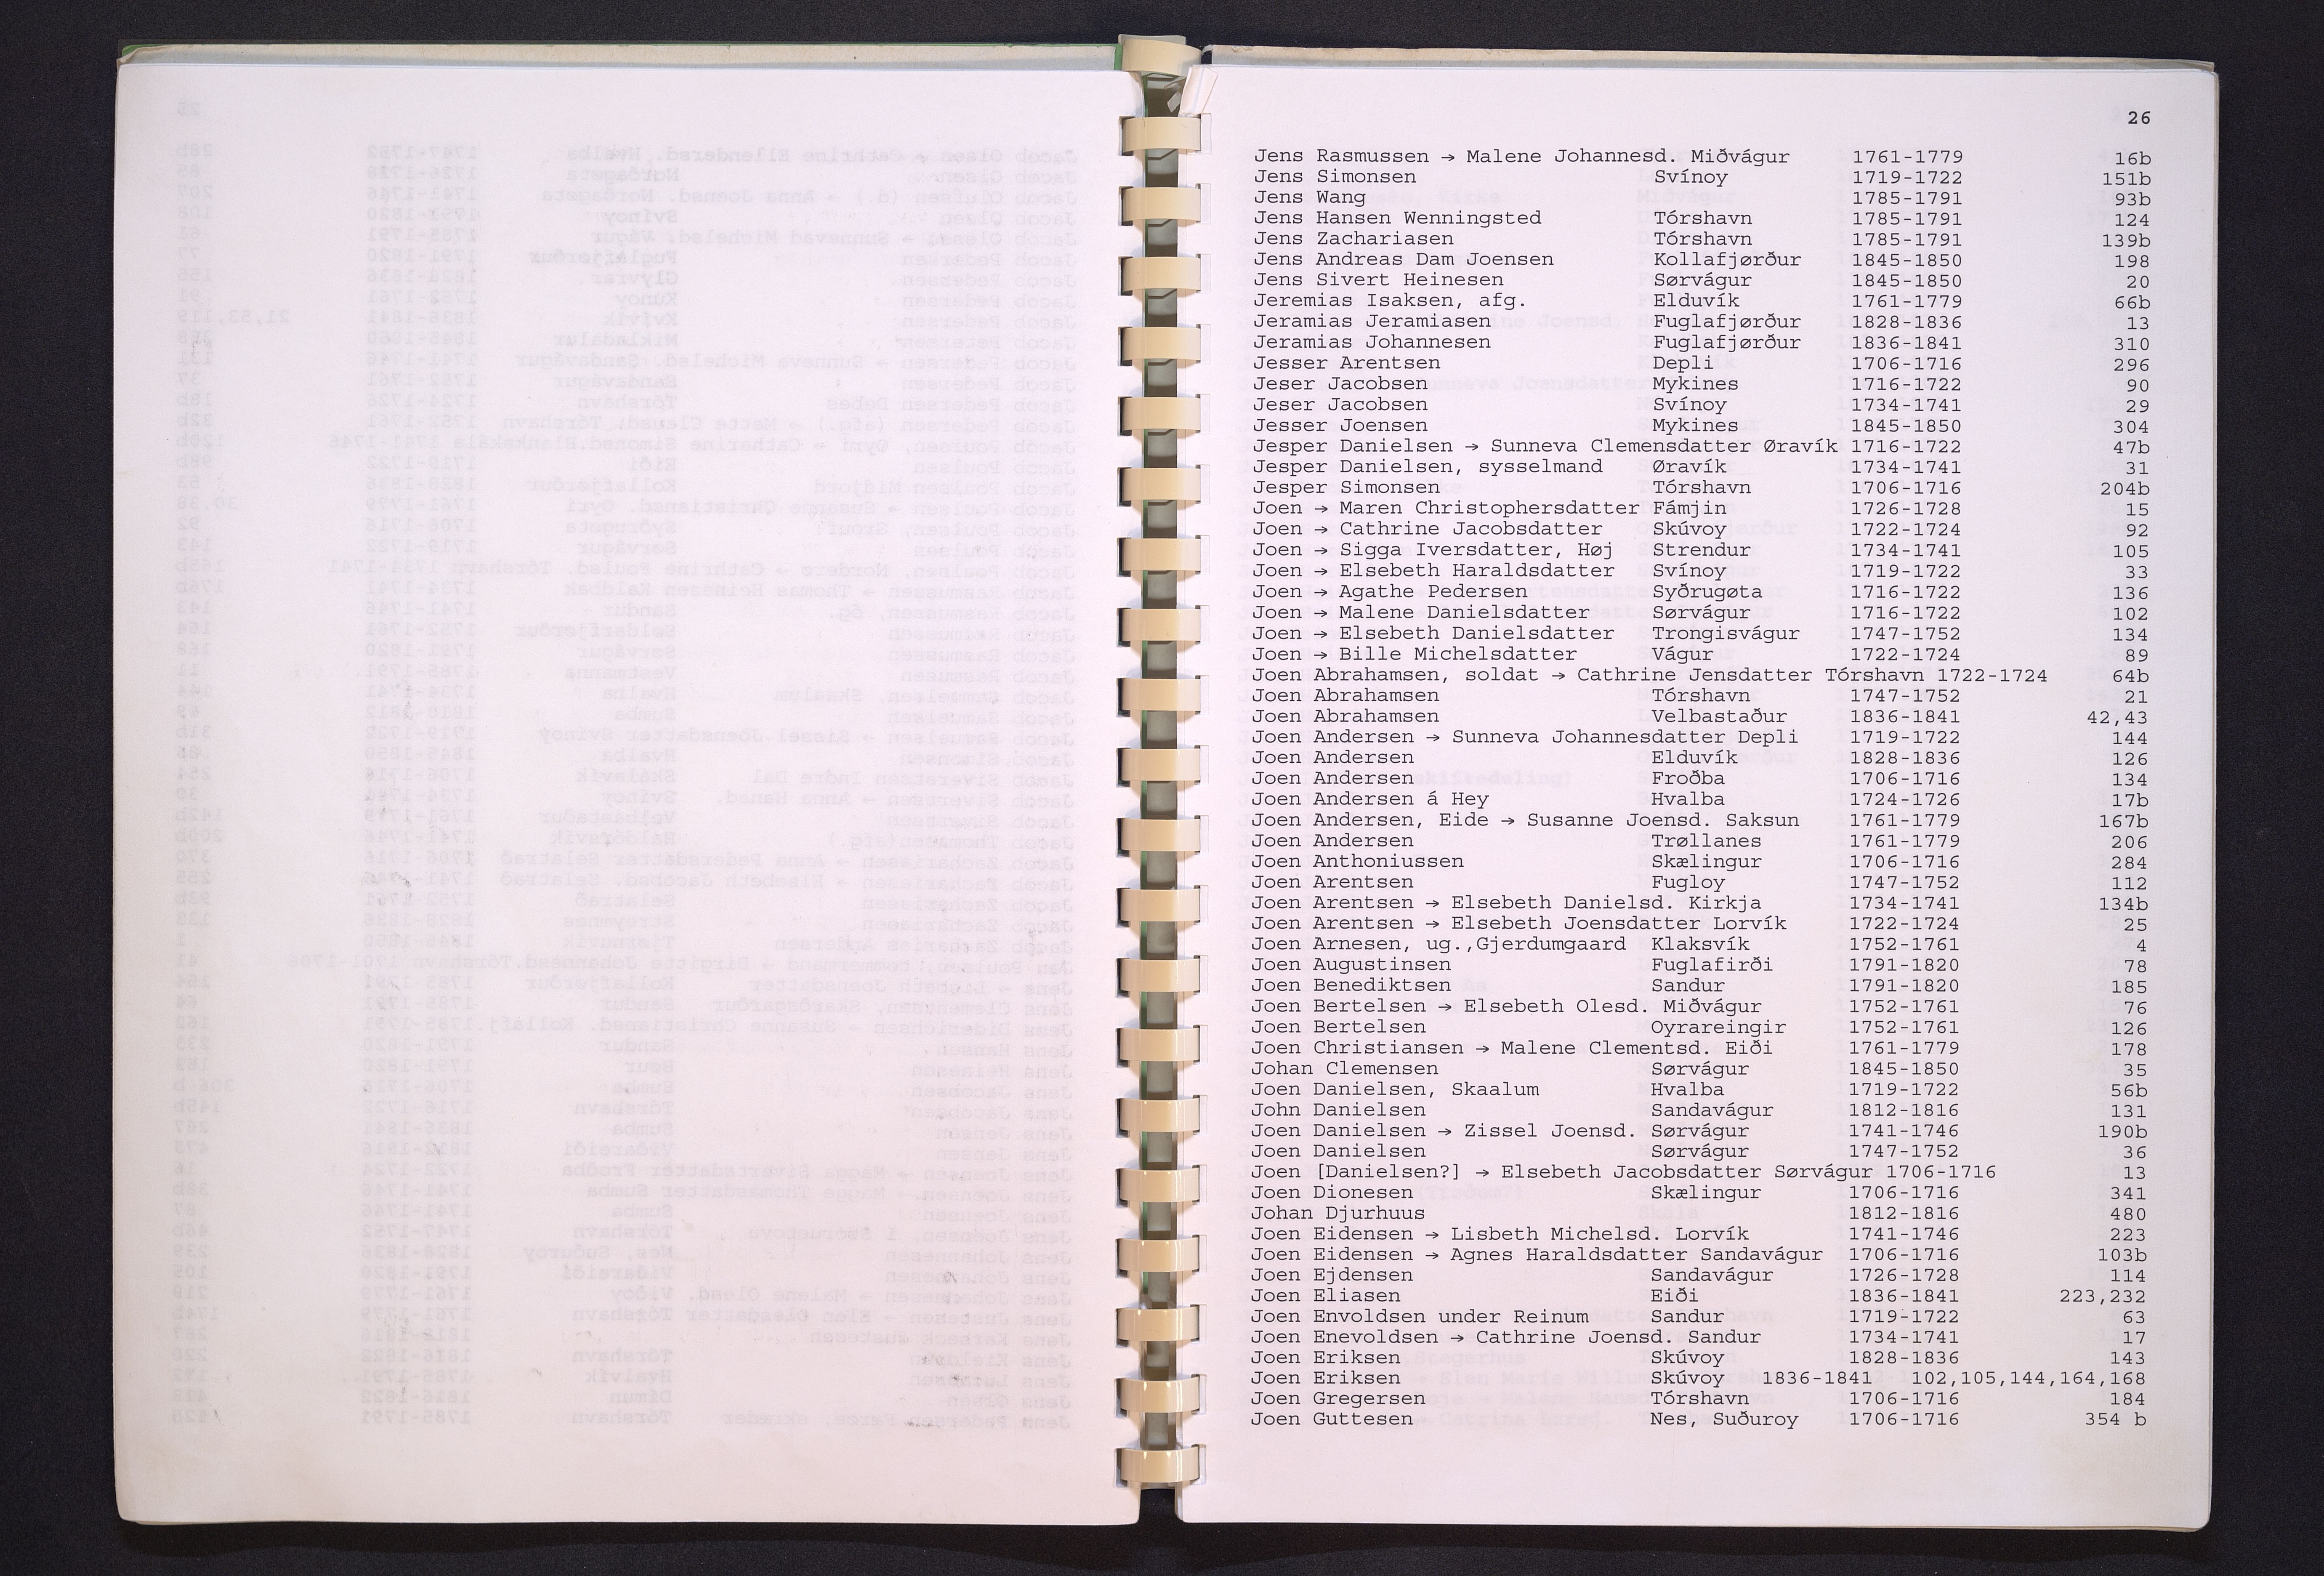 26
Jens Rasmussen → Malene Johannesd. Miðvágur 1761-1779 16b
Jens Simonsen Svínoy 1719-1722 151b
Jens Wang 1785-1791 93b
Jens Hansen Wenningsted Tórshavn 1785-1791 124
Jens Zachariasen Tórshavn 1785-1791 139b
Jens Andreas Dam Joensen Kollafjørður 1845-1850 198
Jens Sivert Heinesen Sørvágur 1845-1850 20
Jeremias Isaksen, afg. Elduvík 1761-1779 66b
Jeramias Jeramiasen Fuglafjørður 1828-1836 13
Jeramias Johannesen Fuglafjørður 1836-1841 310
Jesser Arentsen Depli 1706-1716 296
Jeser Jacobsen Mykines 1716-1722 90
Jeser Jacobsen Svínoy 1734-1741 29
Jesser Joensen Mykines 1845-1850 304
Jesper Danielsen → Sunneva Clemensdatter Øravík 1716-1722 47b
Jesper Danielsen, sysselmand Øravík 1734-1741 31
Jesper Simonsen Tórshavn 1706-1716 204b
Joen → Maren Christophersdatter Fámjin 1726-1728 15
Joen → Cathrine Jacobsdatter Skúvoy 1722-1724 92
Joen → Sigga Iversdatter, Høj Strendur 1734-1741 105
Joen → Elsebeth Haraldsdatter Svínoy 1719-1722 33
Joen → Agathe Pedersen Syðrugøta 1716-1722 136
Joen → Malene Danielsdatter Sørvágur 1716-1722 102
Joen → Elsebeth Danielsdatter Trongisvágur 1747-1752 134
Joen → Bille Michelsdatter Vágur 1722-1724 89
Joen Abrahamsen, soldat → Cathrine Jensdatter Tórshavn 1722-1724 64b
Joen Abrahamsen Tórshavn 1747-1752 21
Joen Abrahamsen Velbastaður 1836-1841 42,43
Joen Andersen → Sunneva Johannesdatter Depli 1719-1722 144
Joen Andersen Elduvík 1828-1836 126
Joen Andersen Froðba 1706-1716 134
Joen Andersen á Hey Hvalba 1724-1726 17b
Joen Andersen, Eide → Susanne Joensd. Saksun 1761-1779 167b
Joen Andersen Trøllanes 1761-1779 206
Joen Anthoniussen Skælingur 1706-1716 284
Joen Arentsen Fugloy 1747-1752 112
Joen Arentsen → Elsebeth Danielsd. Kirkja 1734-1741 134b
Joen Arentsen → Elsebeth Joensdatter Lorvík 1722-1724 25
Joen Arnesen, ug.,Gjerdumgaard Klaksvík 1752-1761 4
Joen Augustinsen Fuglafirði 1791-1820 78
Joen Benediktsen Sandur 1791-1820 185
Joen Bertelsen → Elsebeth Olesd. Miðvágur 1752-1761 76
Joen Bertelsen Oyrareingir 1752-1761 126
Joen Christiansen → Malene Clementsd. Eiði 1761-1779 178
Johan Clemensen Sørvágur 1845-1850 35
Joen Danielsen, Skaalum Hvalba 1719-1722 56b
John Danielsen Sandavágur 1812-1816 131
Joen Danielsen → Zissel Joensd. Sørvágur 1741-1746 190b
Joen Danielsen Sørvágur 1747-1752 36
Joen [Danielsen?] → Elsebeth Jacobsdatter Sørvágur 1706-1716 13
Joen Dionesen Skælingur 1706-1716 341
Johan Djurhuus 1812-1816 480
Joen Eidensen → Lisbeth Michelsd. Lorvík 1741-1746 223
Joen Eidensen → Agnes Haraldsdatter Sandavágur 1706-1716 103b
Joen Ejdensen Sandavágur 1726-1728 114
Joen Eliasen Eiði 1836-1841 223,232
Joen Envoldsen under Reinum Sandur 1719-1722 63
Joen Enevoldsen → Cathrine Joensd. Sandur 1734-1741 17
Joen Eriksen Skúvoy 1828-1836 143
Joen Eriksen Skúvoy 1836-1841 102,105,144,164,168
Joen Gregersen Tórshavn 1706-1716 184
Joen Guttesen Nes, Suðuroy 1706-1716 354 b